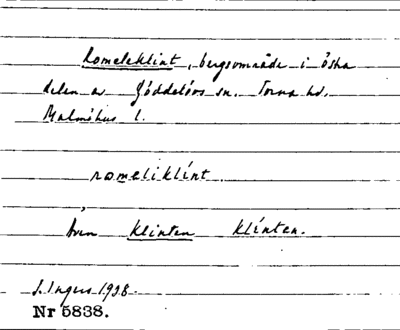 Romeleklint, bergsområde i östra
delen av Göddelövs sn. Torna hd.
Malmöhus l.
romeliklínt
Även Klinten klínten.
I. Ingers 1938.
Nr 5838.